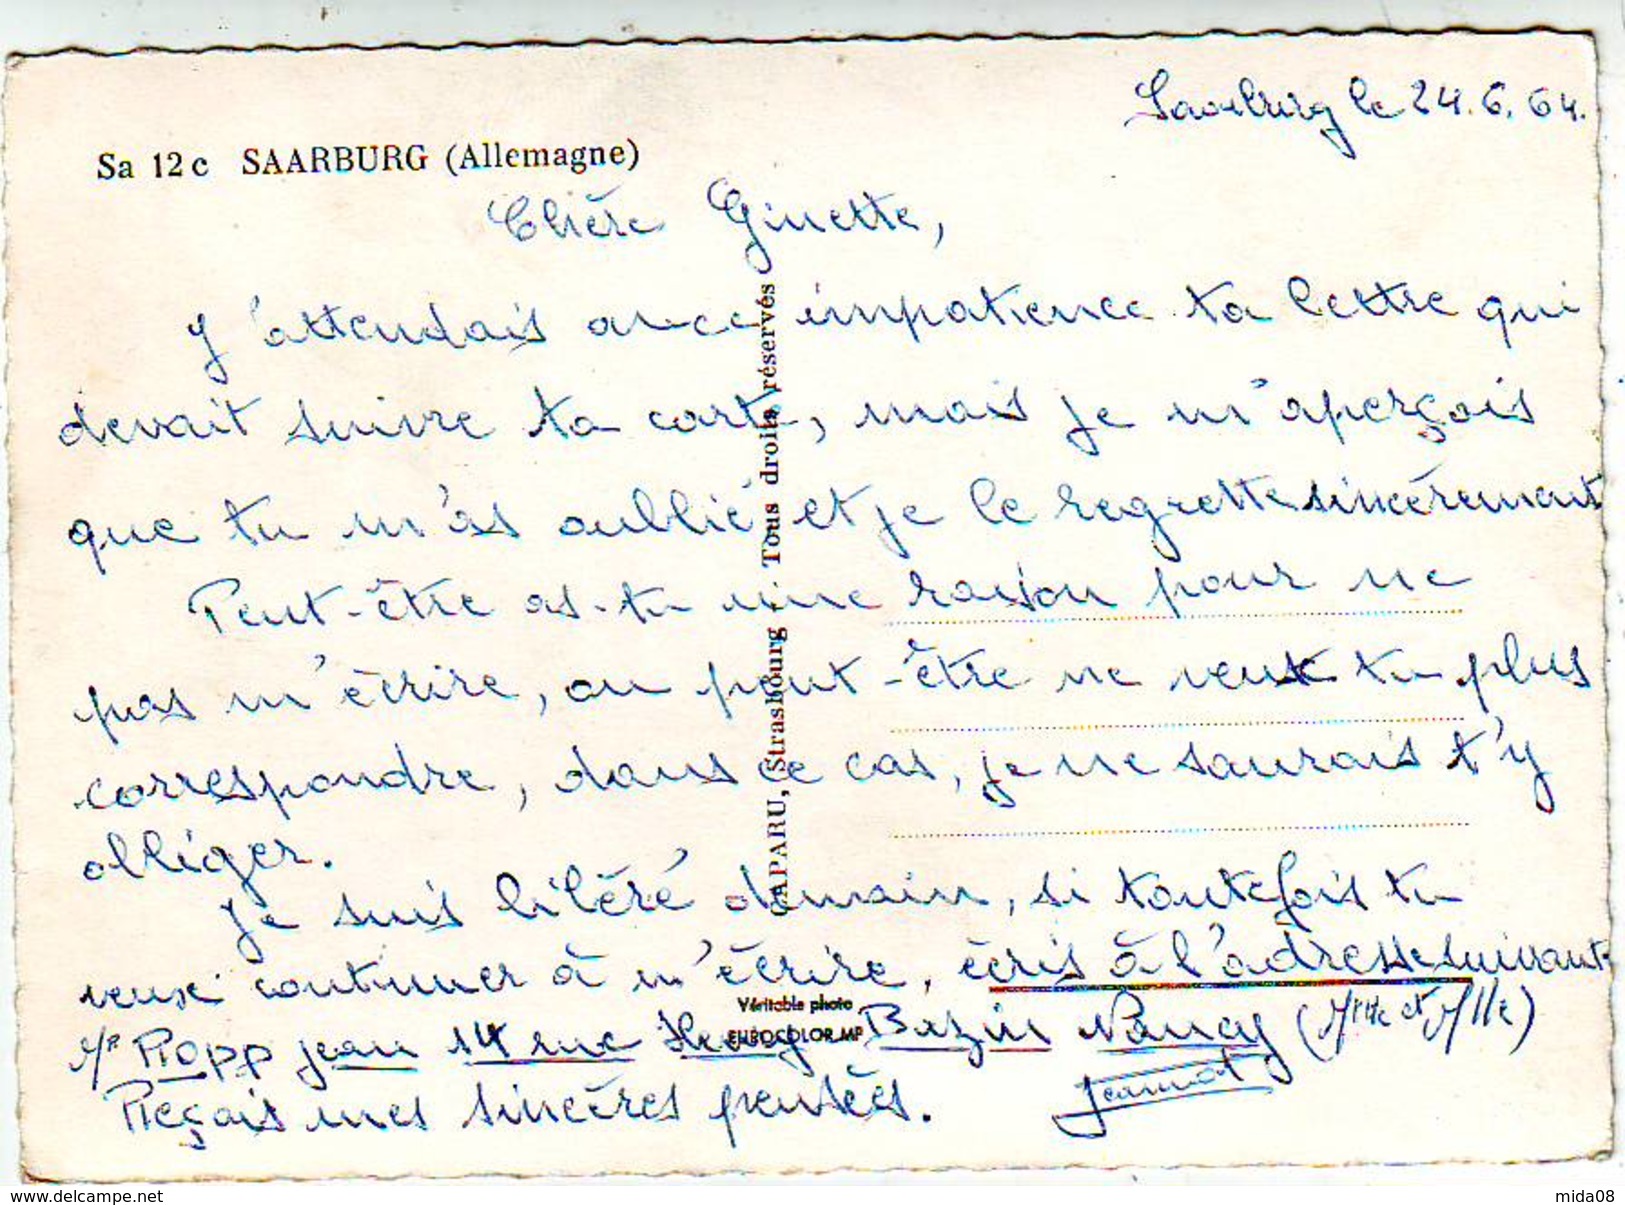 Saarburg le 24.6.64.
Sa 12 c SAARBURG (Allemagne)
Chère Ginette,
J'attendais avec impatience ta lettre qui
devait suivre ta carte, mais je m'aperçois
que tu m'as oublié et je le regrette sincèrement
Peut-être as-tu une raison pour ne
pas m'écrire, ou peut-être ne veux tu plus
correspondre, dans ce cas, je ne saurais t'y
obliger.
Je suis libéré demain, si toutefois tu
veux continuer à m'écrire, écris à l'adresse suivante
Mr Ropp jean 14 rue Henry Bazin Nancy (Mthe et Mlle)
Reçois mes sincères pensées. Jeannot
CAPARU, Strasbourg - Tous droits réservés
Véritable photo
EUROCOLOR MP
www.delcampe.net
mida08